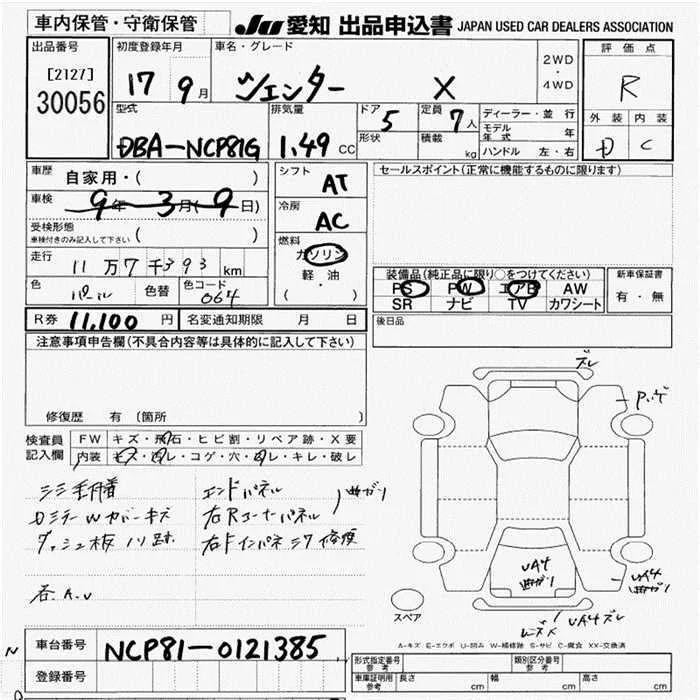 車内保管・守衛保管
JU 愛知 出品申込書 JAPAN USED CAR DEALERS ASSOCIATION
出品番号
[2127]
30056
初度登録年月
17 9月
車名・グレード
シエンター X
2WD
・
4WD
評価点
R
外装 内装
D C
型式
DBA-NCP81G
排気量
1.49 CC
ドア
5
形状
定員
7人
積載
kg
ディーラー・並行
モデル年式 年
ハンドル 左・右
車歴 自家用・( )
車検 9年3月(9日)
受検形態
車検付きのみ記入して下さい ( )
走行 11万7千393km
色 パール 色替 色コード 064
シフト AT
冷房 AC
燃料
ガソリン
軽・油
( )
セールスポイント(正常に機能するものに限ります)
装備品(純正品に限り○をつけてください)
PS PW エアB AW
SR ナビ TV カワシート
新車保証書
有・無
R券 11,100円 名変通知期限 月 日
後日品
注意事項申告欄(不具合内容等は具体的に記入して下さい)
修復歴 有 〔箇所 〕
検査員記入欄
FW キズ・飛石・ヒビ割・リペア跡・X要
内装 キズ・汚レ・コゲ・穴・凹レ・キレ・破レ
エンドパネル
右Rコーナーパネル
曲ガリ
右Fインパネ
Dミラー W カバーキズ
ダッシュ板 ノリ跡
ズレ
UA4
曲ガリ
UA4
曲ガリ
UA4 ズレ
スペア
A-キズ E-エクボ U-凹み W-補修跡 S-サビ C-腐食 XX-交換済
N
車台番号 NCP81-0121385
登録番号
形式指定番号
参考
類別区分番号
参考
車庫証明用
参考
長さ cm 幅 cm 高さ cm